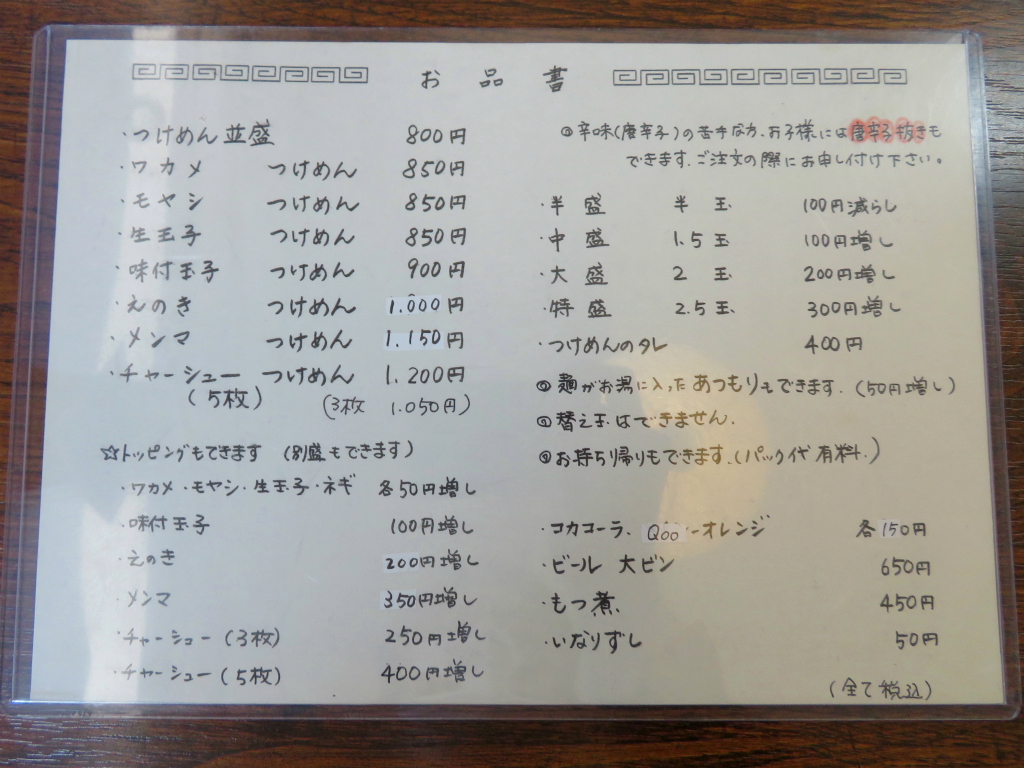 お品書
・つけめん 並盛 800円
・ワカメ つけめん 850円
・モヤシ つけめん 850円
・生玉子 つけめん 850円
・味付玉子 つけめん 900円
・えのき つけめん 1.000円
・メンマ つけめん 1.150円
・チャーシュー つけめん 1.200円
(5枚) (3枚 1.050円)
☆トッピングもできます (別盛もできます)
・ワカメ・モヤシ・生玉子・ネギ 各50円増し
・味付玉子 100円増し
・えのき 200円増し
・メンマ 350円増し
・チャーシュー(3枚) 250円増し
・チャーシュー(5枚) 400円増し
◎辛味(唐辛子)の苦手な方、お子様には唐辛子抜きも
できます。ご注文の際にお申し付け下さい。
・半盛 半玉 100円減らし
・中盛 1.5玉 100円増し
・大盛 2玉 200円増し
・特盛 2.5玉 300円増し
・つけめんのタレ 400円
◎麺がお湯に入ったあつもりもできます.(50円増し)
◎替え玉はできません.
◎お持ち帰りもできます.(パック代有料.)
・コカコーラ、Qooーオレンジ 各150円
・ビール 大ビン 650円
・もつ煮 450円
・いなりずし 50円
(全て税込)